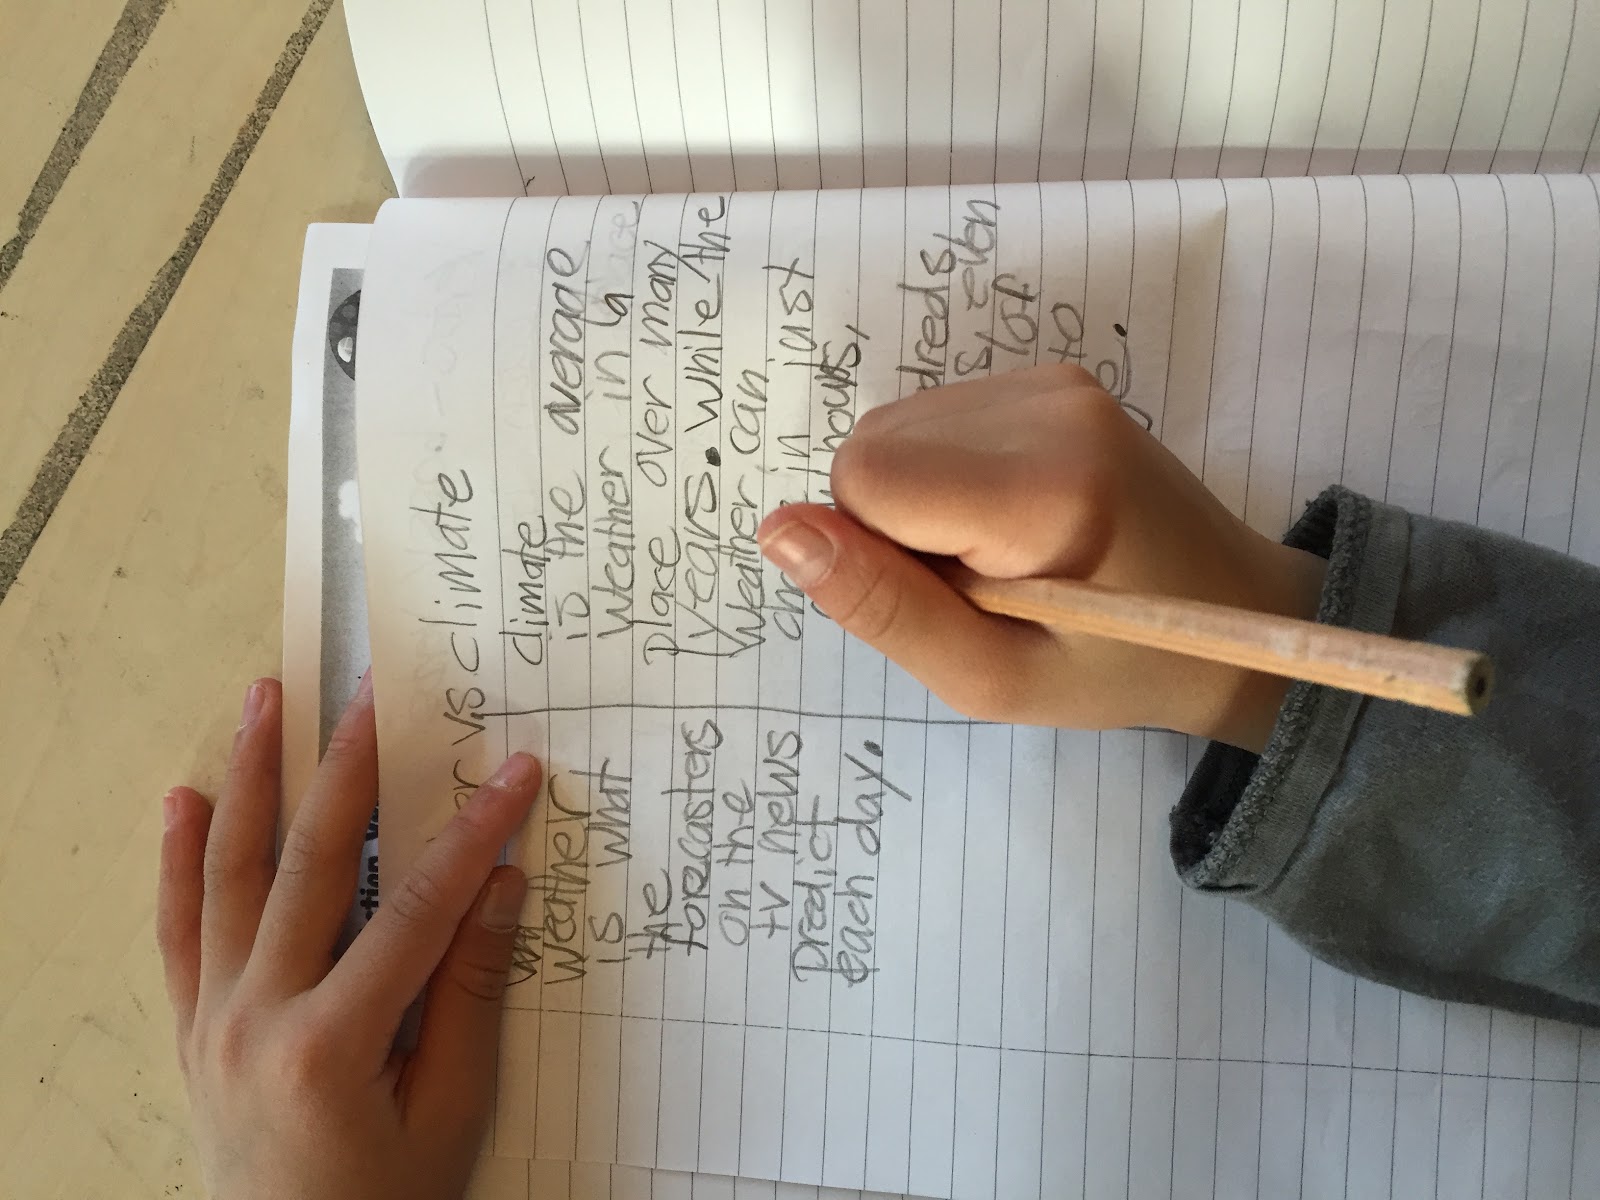 vs climate
weather
is what
the
forecasters
on the
tv news
predict
each day.
climate
is the average
weather in a
place over many
years. while the
weather can
in just
hours,
even
lof
to